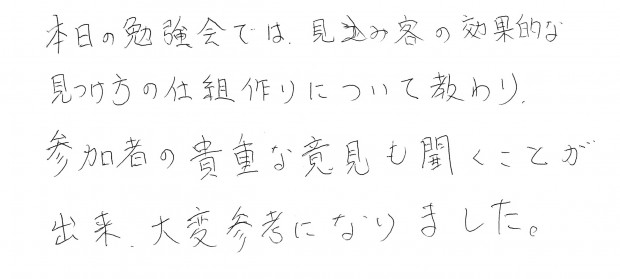 本日の勉強会では、見込み客の効果的な
見つけ方の仕組作りについて教わり、
参加者の貴重な意見も聞くことが
出来、大変参考になりました。